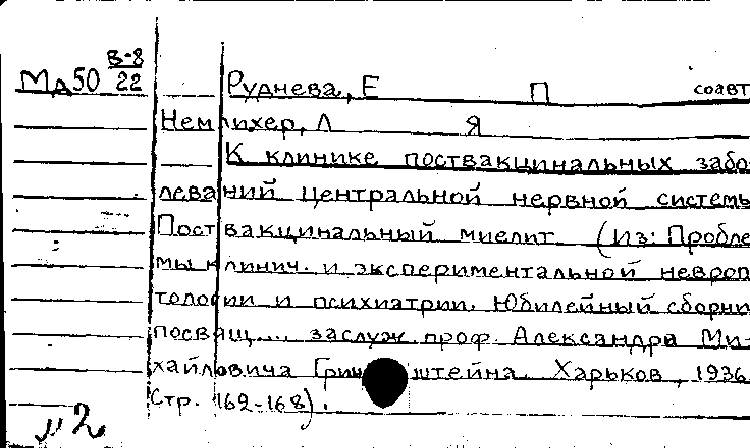 В-8
Мд50 22 Руднева, Е П соавт
Немлихер, Л Я
К клинике поствакцинальных забо-
леваний центральной нервной системы
Поствакцинальный миелит. (Из: Пробле
мы клинич. и экспериментальной невроп
тологии и психиатрии. Юбилейный сборни
посвящ... заслуж. проф. Александра Ми-
хайловича Грин штейна. Харьков, 1936
Стр. 162-168).
"2